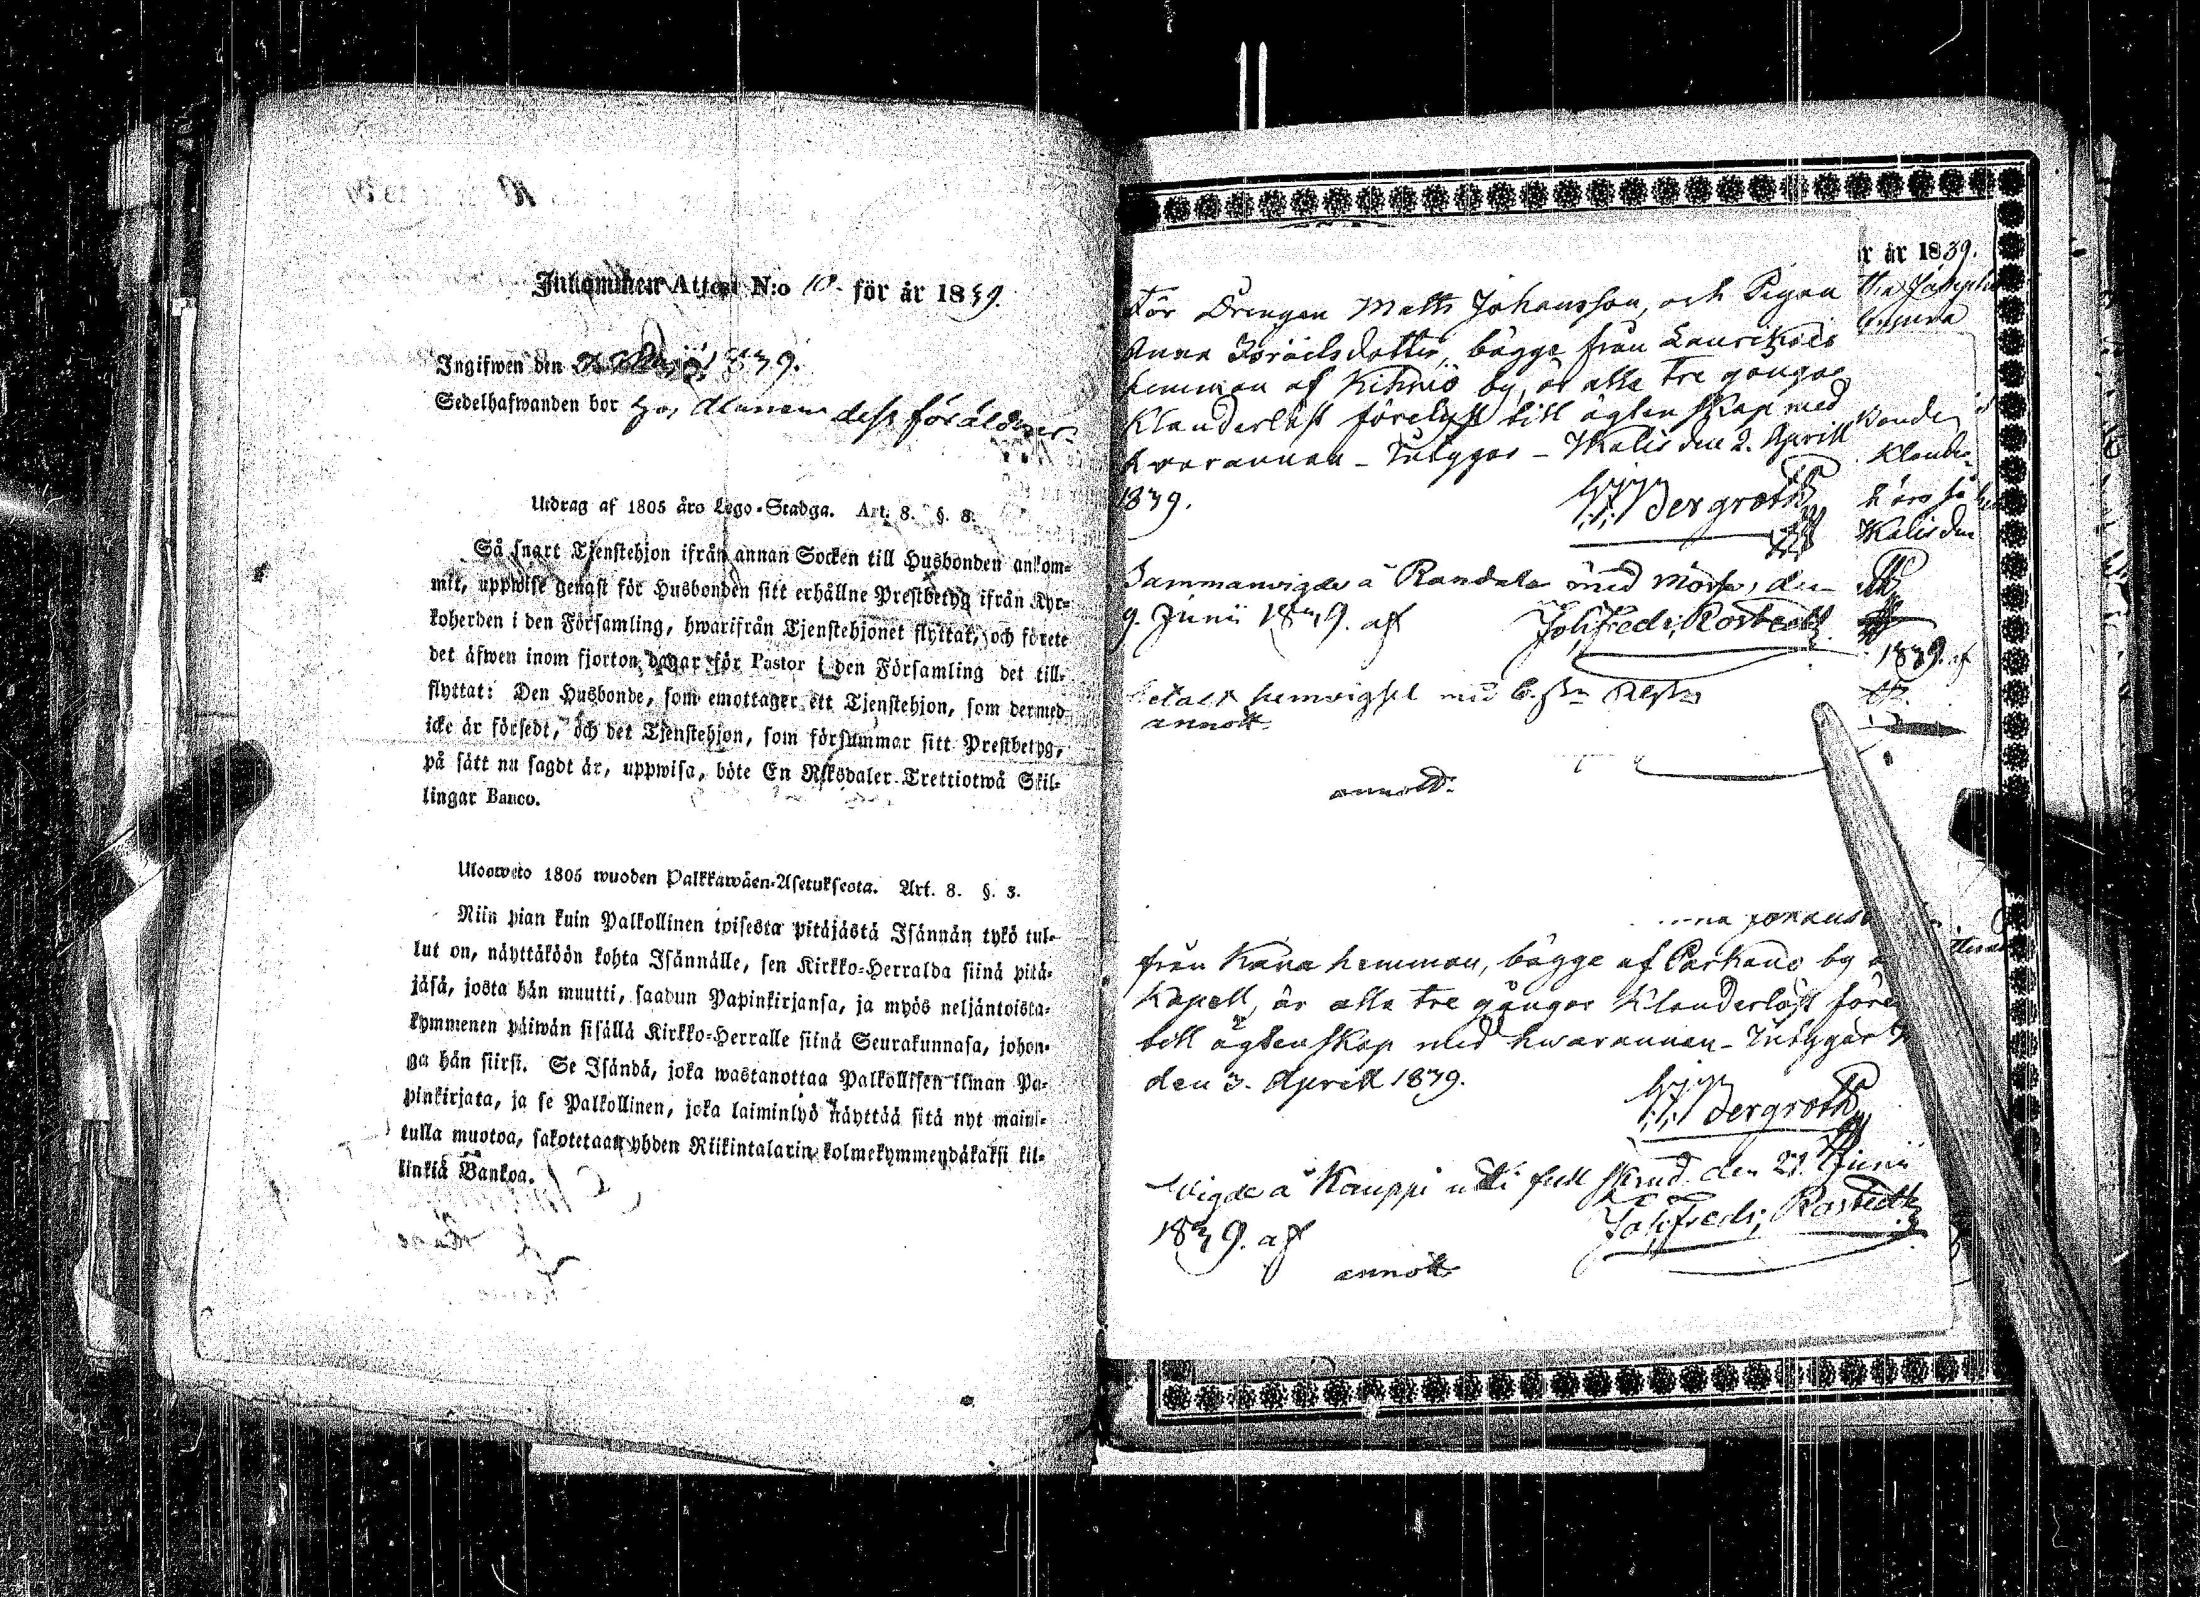 Inkommen Attest N:o 10 för år 1839.
Ingifwen den 1839.
Sedelhafwanden bor hos dess föräldrar.
Utdrag af 1805 års Lego-Stadga. Art. 8. §. 8.
Så snart Tjenstehjon ifrån annan Socken till Husbonden ankom-
mit, uppwise genast för Husbonden sitt erhållne Prestbetyg ifrån Kyr-
koherden i den Församling, hwarifrån Tjenstehjonet flyttat, och förete
det äfwen inom fjorton dagar för Pastor i den Församling det till-
flyttat: Den Husbonde, som emottager ett Tjenstehjon, som dermed
icke är försedt, och det Tjenstehjon, som försummar sitt Prestbetyg,
på sätt nu sagdt är, uppwisa, böte En Riksdaler Trettiotwå Skil-
lingar Banco.
Ulosweto 1805 wuoden Palkkawäen-Asetuksesta. Art. 8. §. 8.
Niin pian kuin Palkollinen toisesta pitäjästä Isännän tykö tul-
lut on, näyttäköön kohta Isännälle, sen Kirkko-Herralda siinä pitä-
jäsä, josta hän muutti, saadun Papinkirjansa, ja myös neljäntoista-
kymmenen päiwän sisällä Kirkko-Herralle siinä Seurakunnasa, johon-
ga hän siirsi. Se Isändä, joka wastanottaa Palkollisen ilman Pa-
pinkirjata, ja se Palkollinen, joka laiminlyö näyttää sitä nyt maini-
tulla muotoa, sakotetaan yhden Riikintalarin kolmekymmendäkaksi kil-
linkiä Bankoa.
r år 1839.
För Drengen Matts Johansson, och Pigan
Anna Isräilsdotter, bägge från Laurikais
hemman af Kihniö by, är alla tre gånger
Klanderlöst förelyst till ägtenskap med
hvarannan - Intygar - Ikalis den 2. Aprill
1839.
Bergroth
Sammanvigde å Randala med Morse, den
9. Junii 1839. af Joh. Fredr. Rostedt
annott.
annott.
från Kara hemman, bägge af Parkano by
Kapell, är alla tre gånger Klanderlöst före
till ägtenskap med hwarannan - Intygar
den 3. Aprill 1839.
Bergroth
Vigde å Kauppi uti full skrud den 23. Junii
1839. af Joh. Fredr. Rostedt
annott
Klander
Ikalis den
1839. af